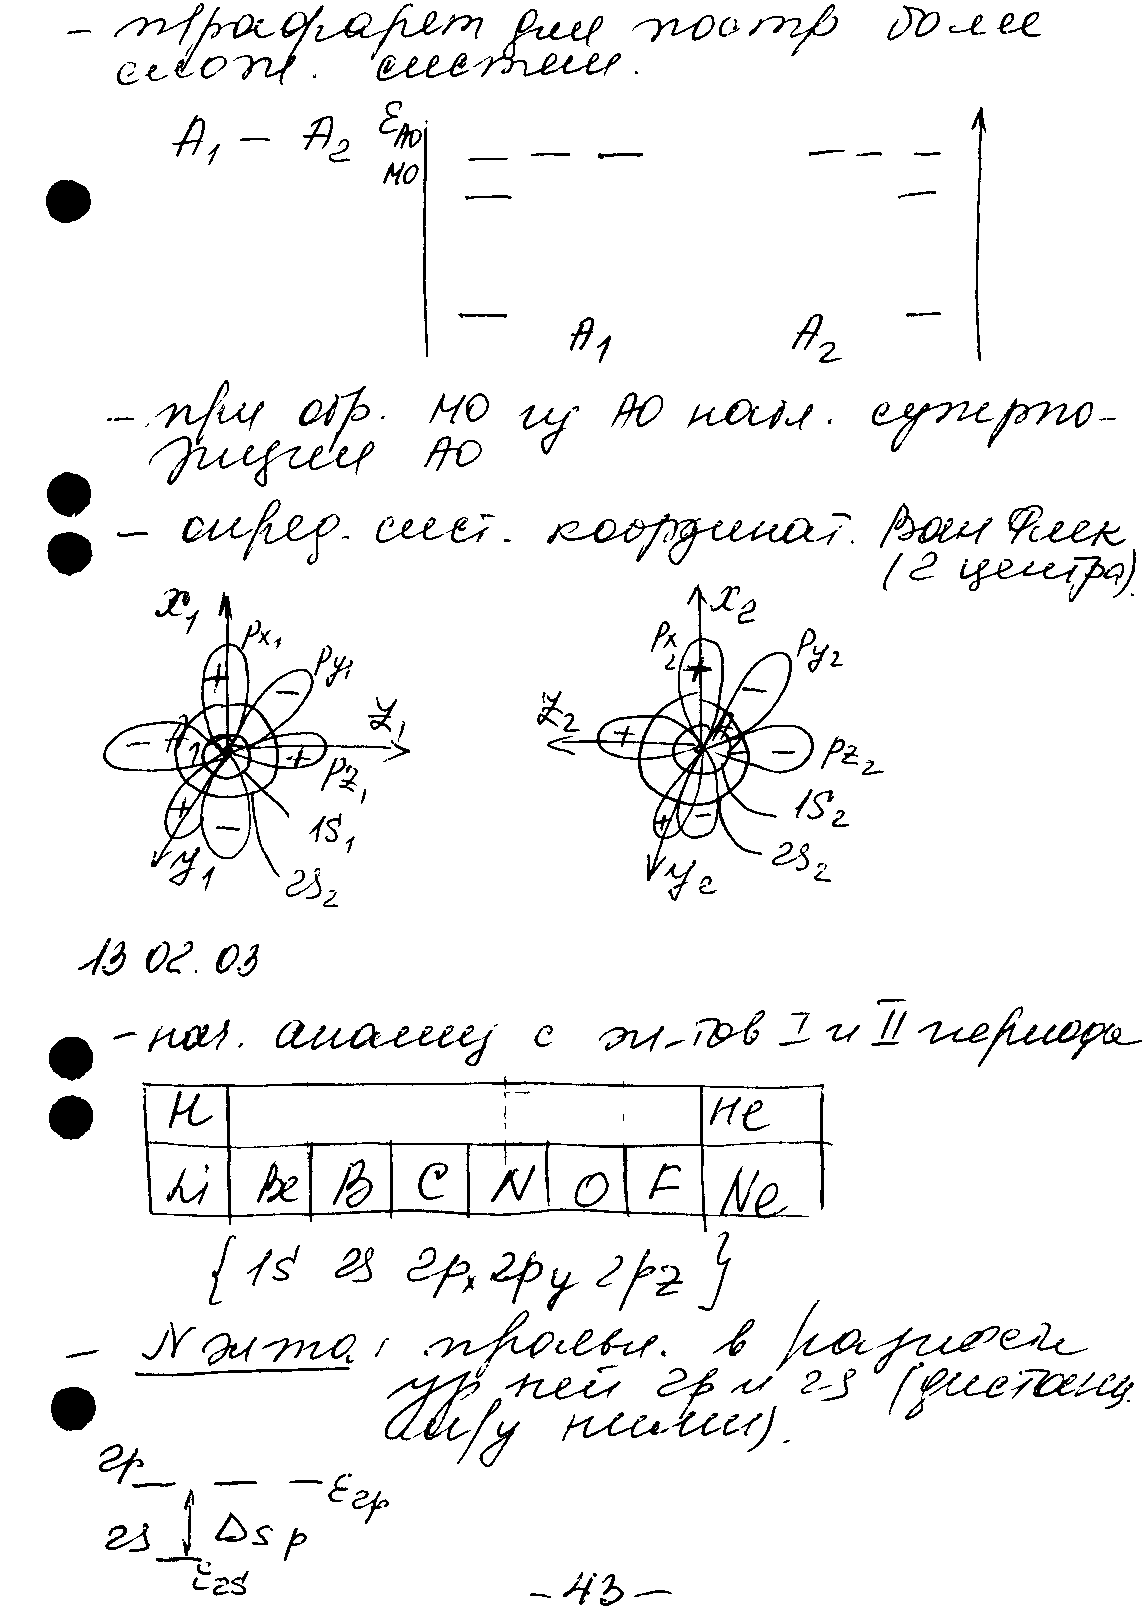 - трафарет для постр более
слож. систем.
A₁ - A₂ ε_AO
MO
A₁ A₂
- при обр. МО из АО набл. суперпо-
зиции АО
- опред. сист. координат. Ван Флек
(2 центра).
x₁ px₁ py₁ z₁ A₁ pz₁ 1S₁ 2S₂ y₁
x₂ px₂ py₂ z₂ pz₂ 1S₂ 2S₂ y₂
13 02.03
- нач. анализ с эл-тов I и II периода
H He
Li Be B C N O F Ne
{ 1S 2S 2px 2py 2pz }
- N эл-та: проявл. в разности
ур-ней 2p и 2S (дистанц.
м/у ними).
2p ε2p
2S Δsp
ε2S
- 43 -